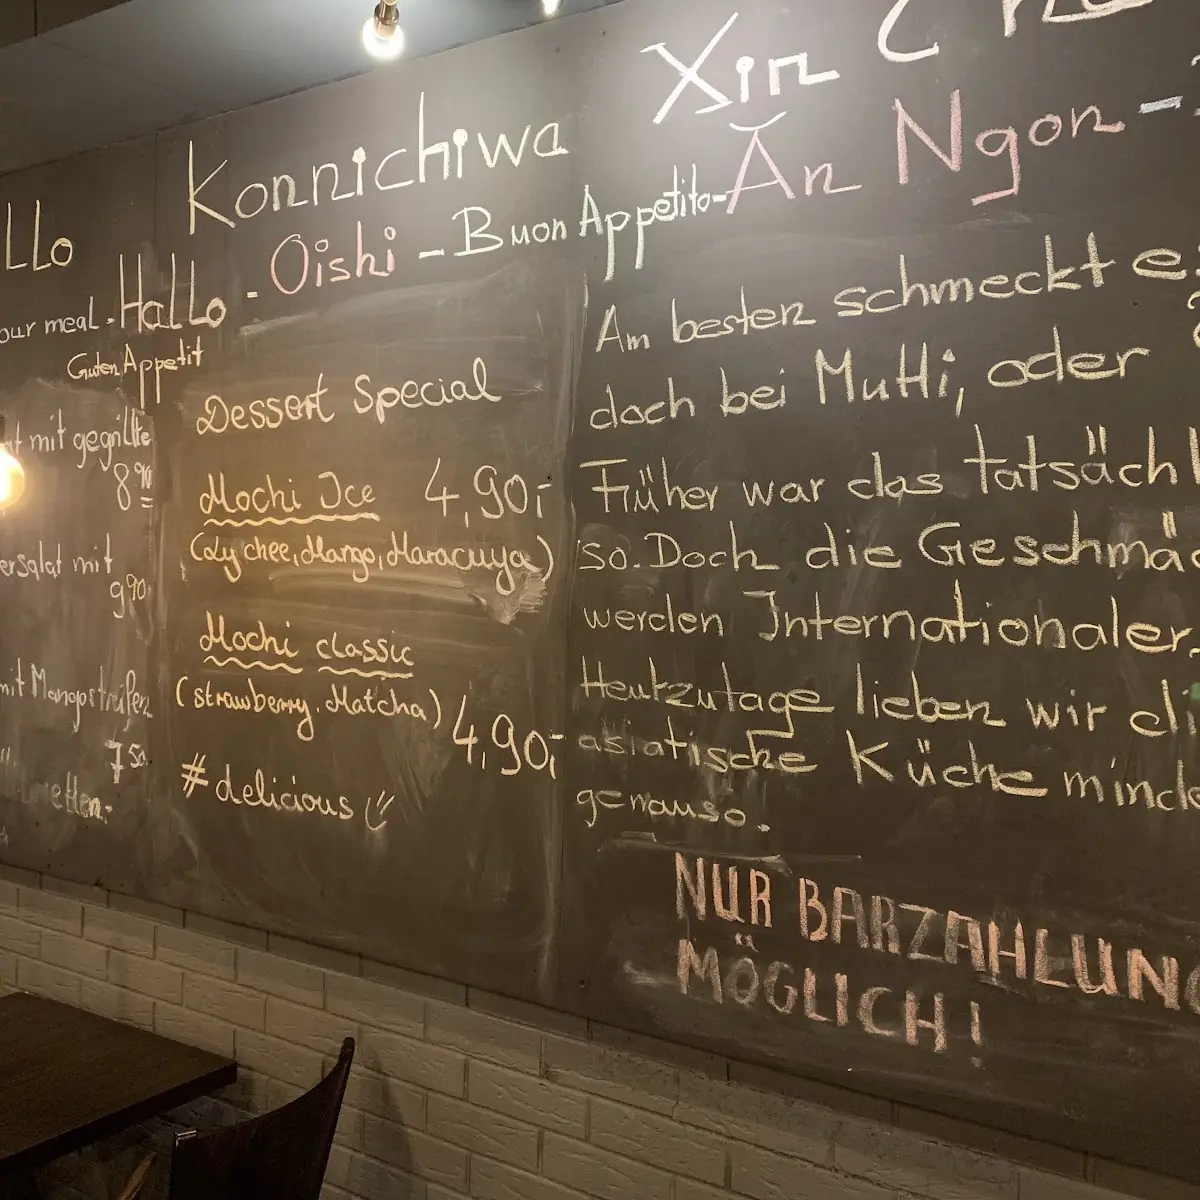 Xin Ch
Konnichiwa
llo
our meal - Hallo - Oishi - Buon Appetito - Ăn Ngon -
Guten Appetit
t mit gegrillte
8,90
ersalat mit
9,90
mit Mangostreifen
7,50
etten:
Dessert Special
Mochi Ice 4,90,-
(Lychee, Mango, Maracuya)
Mochi classic
(strawberry, Matcha) 4,90,-
# delicious
Am besten schmeckt es
doch bei Mutti, oder ?
Früher war das tatsächl
so. Doch die Geschmä
werden Internationaler.
Heutzutage lieben wir di
asiatische Küche minde
genauso.
NUR BARZAHLUNG
MÖGLICH!